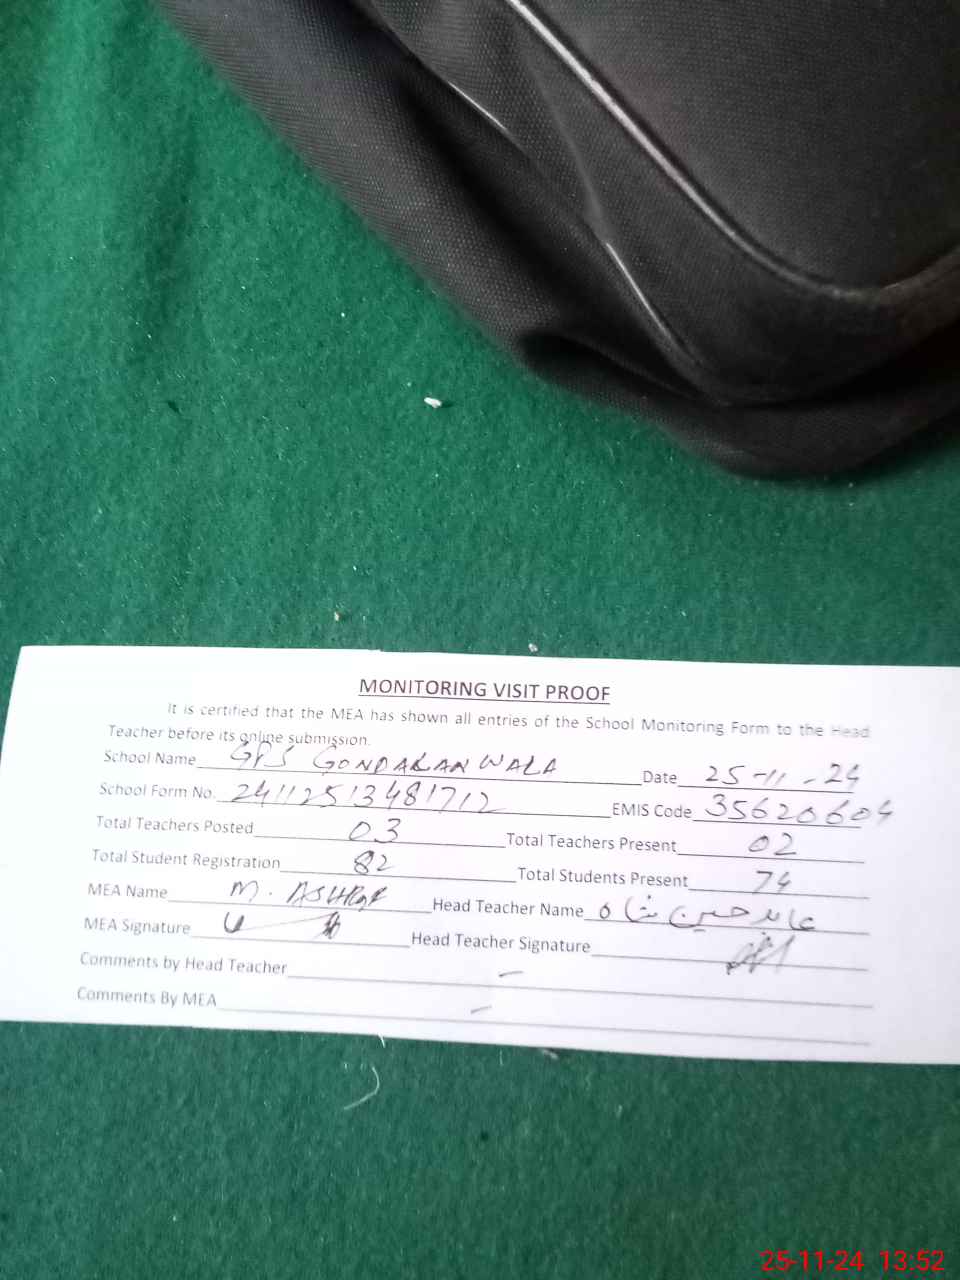 MONITORING VISIT PROOF
It is certified that the MEA has shown all entries of the School Monitoring Form to the Head
Teacher before its online submission.
School Name GPS GONDALANWALA Date 25-11-24
School Form No. 24112513481712 EMIS Code 35620604
Total Teachers Posted 03 Total Teachers Present 02
Total Student Registration 82 Total Students Present 74
MEA Name M. ASHRAF Head Teacher Name عابد حسین شاہ
MEA Signature Head Teacher Signature
Comments by Head Teacher –
Comments By MEA –
25-11-24 13:52